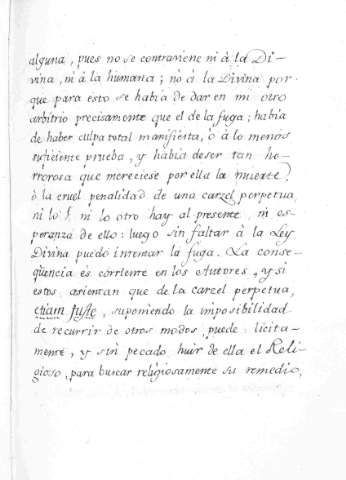 alguna, pues no se contraviene ni á la Di-
vina, ni á la humana; no á la Divina por-
que para esto se había de dar en mi otro
arbitrio precisamente que el de la fuga; había
de haber culpa total manifiesta, ò á lo menos
suficiente prueba, y había de ser tan ho-
rrorosa que mereciese por ella la muerte,
ò la cruel penalidad de una carzel perpetua,
ni lo 1, ni lo otro hay al presente, ni es-
peranza de ello: luego sin faltar à la Ley
Divina puedo intentar la fuga. La conse-
qüencia es corriente en los Autores, y si
estos asientan que de la carzel perpetua,
etiam juste, suponiendo la imposibilidad
de recurrir de otros modos, puede licita-
mente, y sin pecado, huir de ella el Reli-
gioso, para buscar religiosamente su remedio,